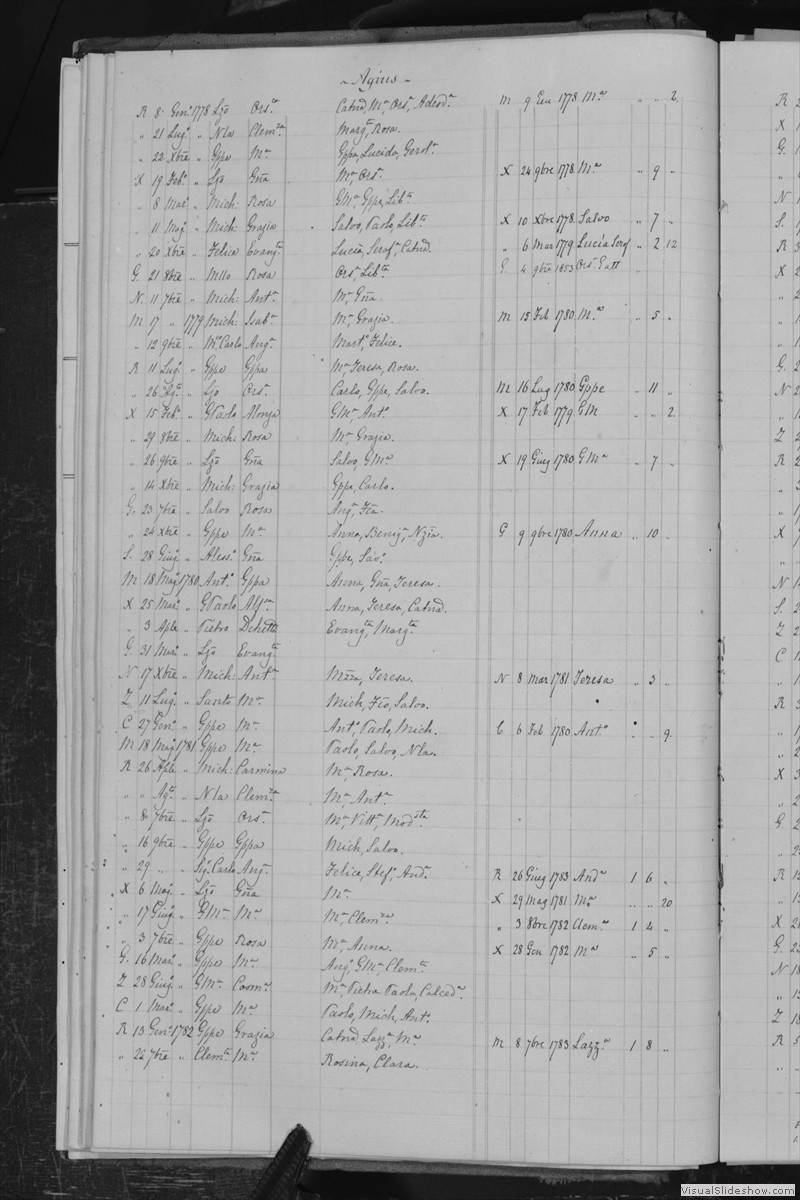 ~ Agius ~
R 8 Gen.o 1778 Ljõ Ors.la Catnd, M.a, Ors.a, Adeod.a M 9 Gen 1778 M.a " " 2
" 21 Lug.o " Nla Clem.za Marg.ta, Rosa.
" 22 Xbre " Gppe M.a Gppa, Lucida, Gerol.a
X 19 Feb.o " Ljõ Gña M.a, Ors.a X 24 9bre 1778 M.a " 9 "
" 8 Mar.o " Mich: Rosa GM.a, Gppe, Lib.ta
" 11 Mag.o " Mich: Grazia Salvo, Paolo, Lib.ta X 10 Xbre 1778 Salvo " 7 "
" 20 Xbre " Felice Evang.ta Lucia, Seraf.a, Catnd. " 6 Mar 1779 Lucia Seraf " 2 12
G. 21 8bre " Mllo Rosa Ors.a, Lib.ta G 4 9bre 1853 Ors.a Gatt
N. 11 7bre " Mich: Ant.a M.a, Gña.
M 17 " " 1779 Mich: Isab.a M.a, Grazia. M 15 Feb 1780 M.a " 5 "
" 12 9bre " M.o Carlo Ang.a Mart.o, Felice.
R 11 Lug.o " Gppe Gppa M.a, Teresa, Rosa.
" 26 " Ljõ Ors.a Carlo, Gppe, Salvo. M 16 Lug 1780 Gppe " 11 "
X 15 Feb.o " GPaolo Alonza GM.a, Ant.o X 17 Feb 1779 GM " " 2
" 29 8bre " Mich: Rosa M.a, Grazia.
" 26 9bre " Ljõ Gña Salvo, GM.a X 19 Giug 1780 GM.a " 7 "
" 14 Xbre " Mich: Grazia Gppe, Carlo.
G. 23 7bre " Salvo Rosa Ang.o, Fca.
" 24 Xbre " Gppe M.a Anna, Benig.a, Nzia. G 9 9bre 1780 Anna " 10 "
S. 28 Giug.o " Aless.o Gña Gppe, Sav.o
M 18 Mag.o 1780 Ant.o Gppa Anna, Gña, Teresa.
X 25 Mar.o " GPaolo Alf.a Anna, Teresa, Catnd.
" 3 Aple " Pietro Evang.ta, Marg.ta
G. 31 Mar.o " Ljõ Evang.ta
N 17 Xbre " Mich: Ant.a Teresa. N 8 mar 1781 Teresa " 3 "
Z 11 Lug.o " Santo M.a Mich, Fco, Salvo.
C 27 Gen.o " Gppe M.a Ant.o, Paolo, Mich. C 6 Feb 1780 Ant.o " " 9
M 18 Mag.o 1781 Gppe M.a Paolo, Salvo, Nla.
R 26 Aple " Mich: Carmina M.a, Rosa.
" " Ag.to " Nla Clem.za M.a, Ant.a
" 8 7bre " Ljõ Ors.a M.a, Vitt.a, Mod.sta
" 16 9bre " Gppe Gppa Mich, Salvo.
" 29 " " Sig.Carlo Ang.a Felice, Stef.o, And.a R 26 Giug 1783 And.a 1 6 "
X 6 Mag.o " Ljõ Gña M.a X 29 Mag 1781 M.a " " 20
" 17 Giug.o " GM.a M.a M.a, Clem.za " 3 8bre 1782 Clem.a 1 4 "
" 3 7bre " Gppe Rosa M.a, Anna. X 28 Gen 1782 M.a " 5 "
G. 16 Mar.o " Gppe M.a Ang.o, GM.a, Clem.te
Z 28 Giug.o " GM.a Cosm.a M.a, Pietra Paola, Calced.a
C 1 Mar.o " Gppe M.a Paolo, Mich, Ant.
R 13 Gen.o 1782 Gppe Grazia Catnd, Lazz.a, M.a M 8 7bre 1783 Lazz.a 1 8 "
" 22 7bre " Clem.te M.a Rosina, Clara.
VisualSlideshow.com